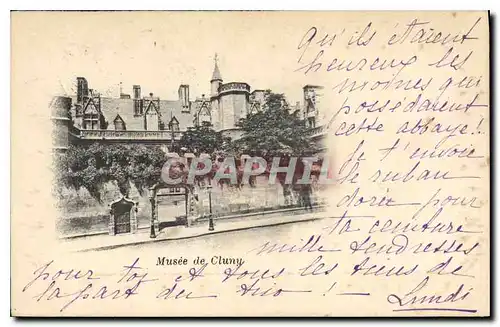 Qu'ils étaient
heureux les
moines qui
possédaient
cette abbaye!
Je t'envoie
le ruban
dorée pour
ta ceinture
mille tendresses
CPARAMA
Musée de Cluny
pour toi et tous les tiens de
la part du trio! —
Lundi